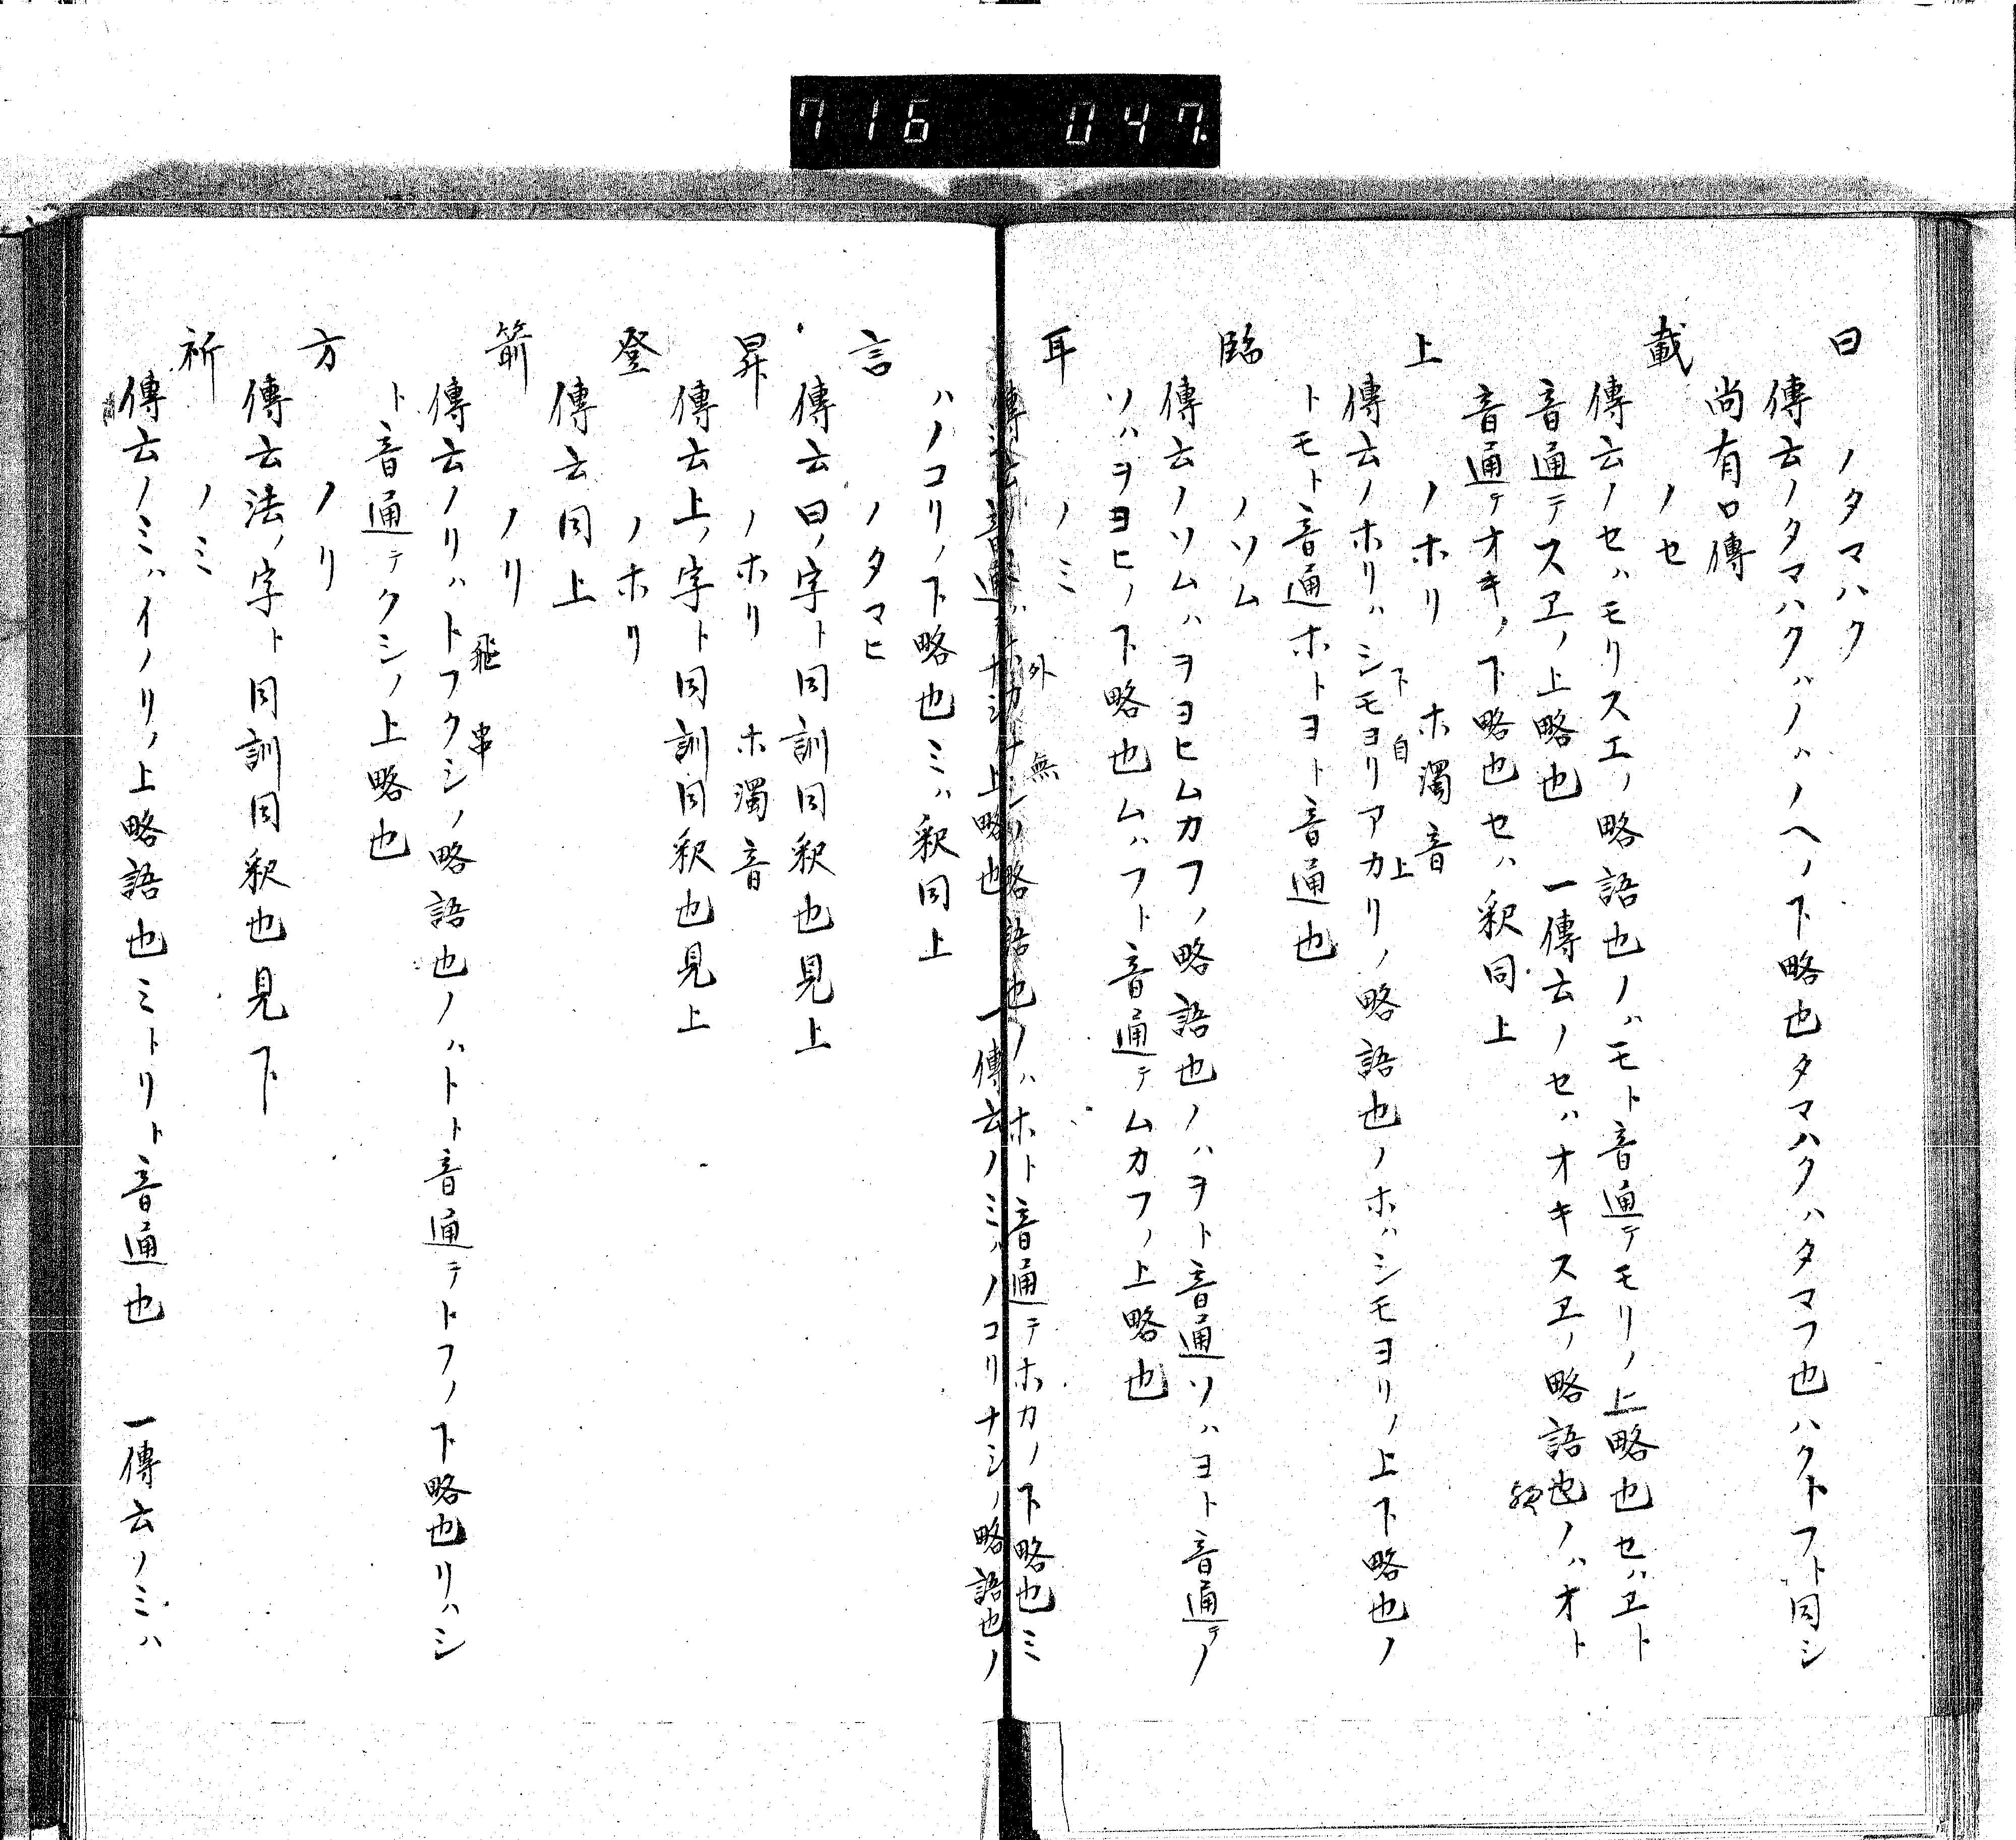 716 047.
曰 ノタマハク
傳云ノタマハクハノハノヘノ下略也タマハクハタマフ也ハクトフト同シ
尚有口傳
載 ノセ
傳云ノセハモリスエノ略語也ノハモト音通テモリノ上略也セハヱト
音通テスヱノ上略也 一傳云ノセハオキスヱノ略語也ノハオト
音通テオキノ下略也セハ釈同上
上 ノホリ ホ濁音
下 自 上
傳云ノホリハシモヨリアカリノ略語也ノホハシモヨリノ上下略也ノ
トモト音通ホトヨト音通也
臨 ノソム
傳云ノソムハヲヨヒムカフノ略語也ノハヲト音通ソハヨト音通テノ
ソハヲヨヒノ下略也ムハフト音通テムカフノ上略也
耳 ノミ
外 無
傳云ノミハホカナシノ略語也ノハホト音通テホカノ下略也ミ
音通テナシノ上略也 一傳云ノミハノコリナシノ略語也ノ
ハノコリノ下略也ミハ釈同上
言 ノタマヒ
傳云曰ノ字ト同訓同釈也見上
昇 ノホリ ホ濁音
傳云上ノ字ト同訓同釈也見上
登 ノホリ
傳云同上
箭 ノリ
飛 串
傳云ノリハトフクシノ略語也ノハトト音通テトフノ下略也リハシ
ト音通テクシノ上略也
方 ノリ
傳云法ノ字ト同訓同釈也見下
祈 ノミ
傳云ノミハイノリノ上略語也ミトリト音通也 一傳云ノミハ